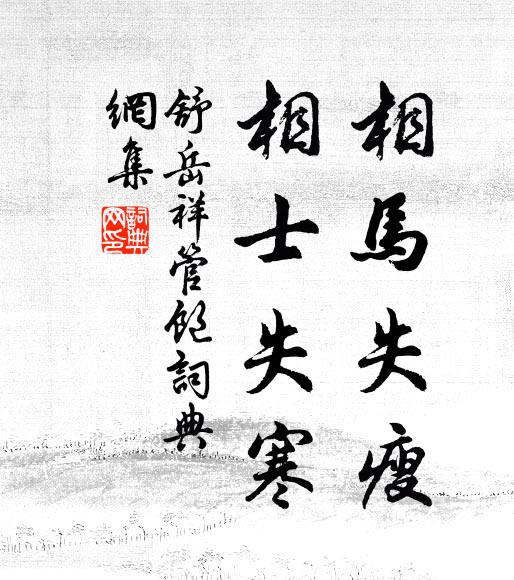 相馬失瘦
相士失寒
舒岳祥管飽詞典
網集
詞典
网印